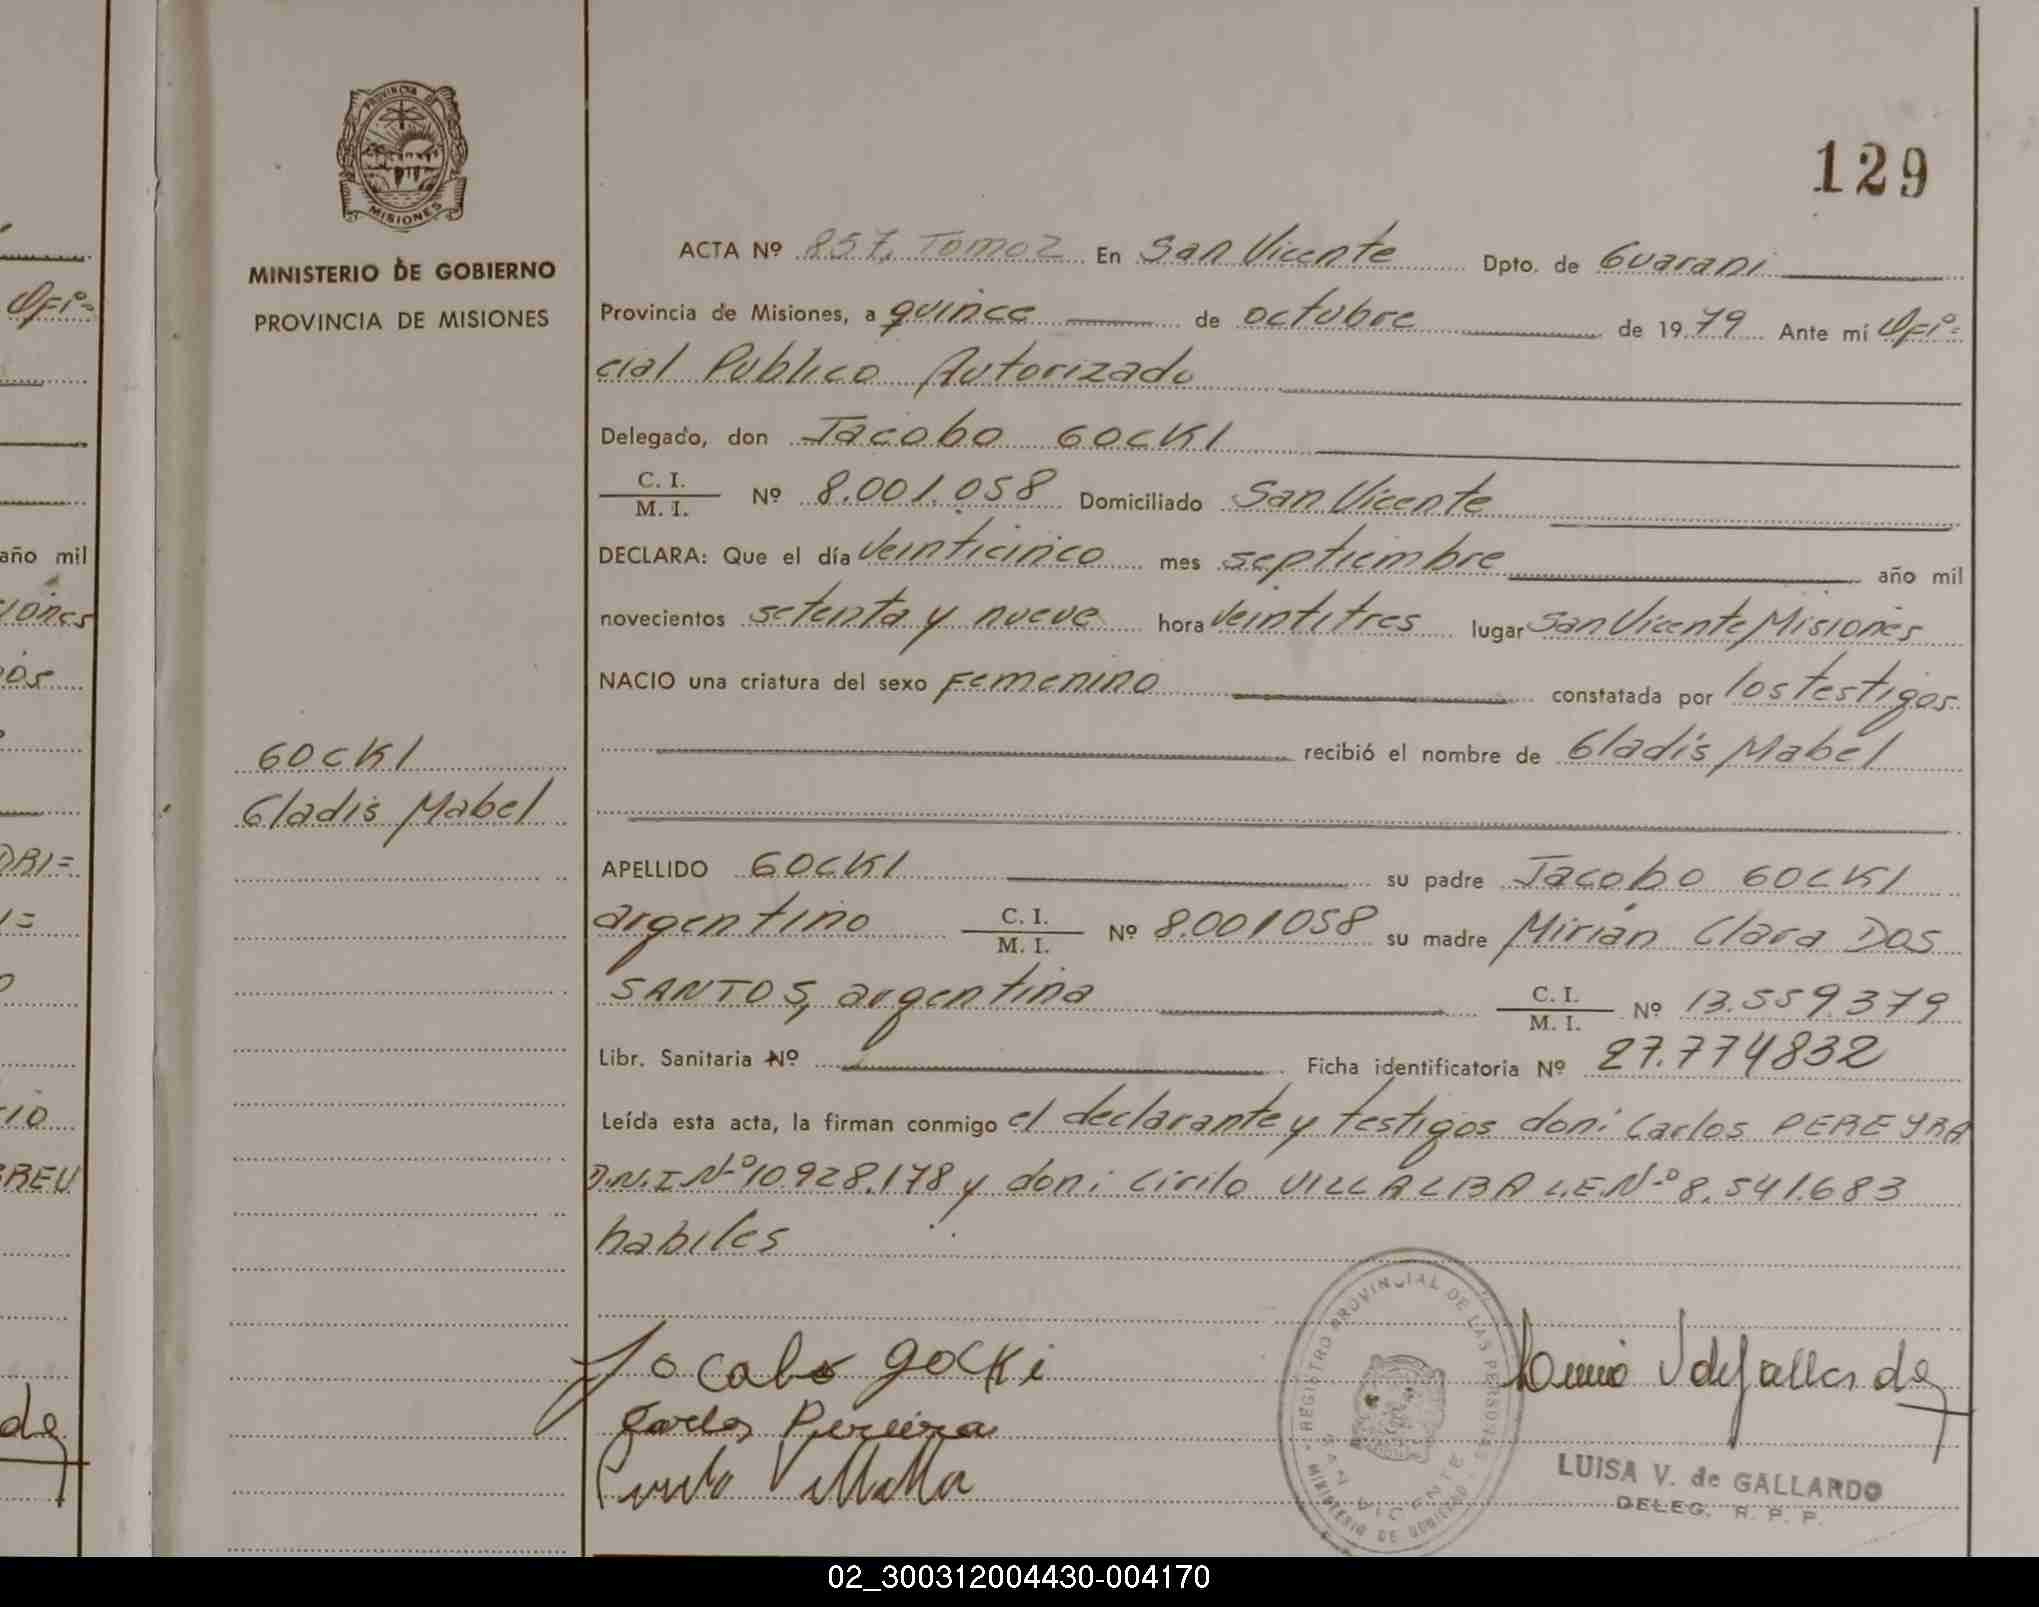 PROVINCIA DE
MISIONES
MINISTERIO DE GOBIERNO
PROVINCIA DE MISIONES
GOCKI
Gladis Mabel
129
ACTA Nº 857, Tomo 2 En San Vicente Dpto. de Guarani
Provincia de Misiones, a quince de octubre de 1979 Ante mí Ofi=
cial Publico Autorizado
Delegado, don Jacobo GOCKI
C. I.
M. I. Nº 8.001.058 Domiciliado San Vicente
DECLARA: Que el día veinticinco mes septiembre año mil
novecientos setenta y nueve hora veintitres lugar San Vicente, Misiones
NACIO una criatura del sexo Femenino constatada por los testigos
recibió el nombre de Gladis Mabel
APELLIDO GOCKI su padre Jacobo GOCKI
argentino C. I.
M. I. Nº 8.001058 su madre Mirian Clara DOS
SANTOS, argentina C. I.
M. I. Nº 13.559.379
Libr. Sanitaria Nº Ficha identificatoria Nº 27.774832
Leída esta acta, la firman conmigo el declarante y testigos don: Carlos PEREYRA
D.N.I Nº 10.928.178 y don: Cirilo VILLALBA L.E.Nº 8.541.683
habiles
Jocabo gocki
Carlos Pereira
REGISTRO PROVINCIAL DE LAS PERSONAS
SAN VICENTE
MINISTERIO DE GOBIERNO
LUISA V. de GALLARDO
DELEG. R. P. P.
Ofi=
año mil
02_300312004430-004170